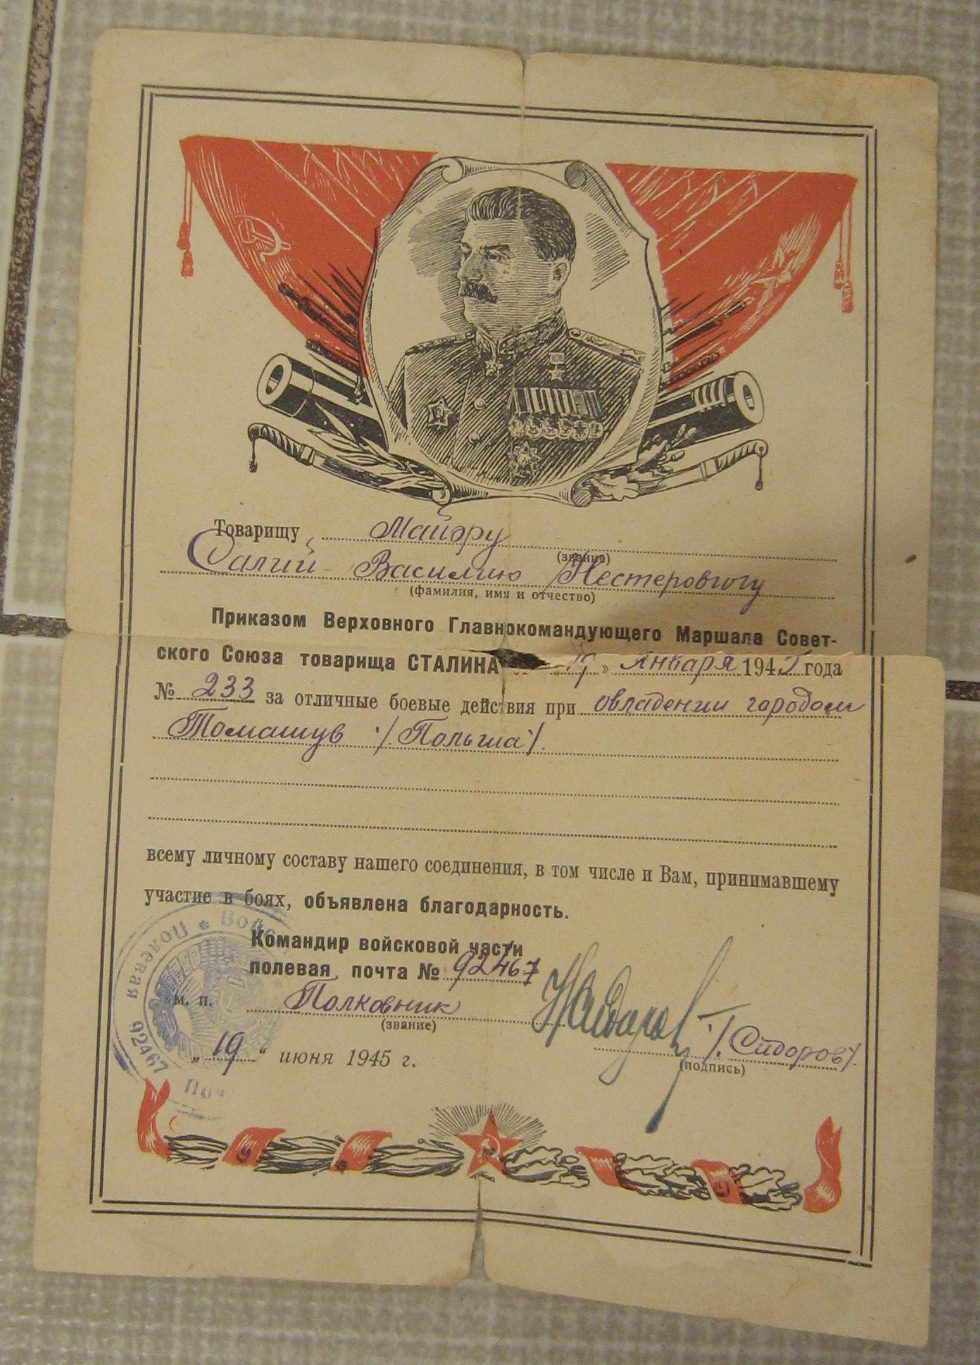 Товарищу Майору
(звание)
Салий Василию Нестеровичу
(фамилия, имя и отчество)
Приказом Верховного Главнокомандующего Маршала Совет-
ского Союза товарища СТАЛИНА 19 " января 1945 года
№ 233 за отличные боевые действия при овладении городом
Томашув /Польша/.
всему личному составу нашего соединения, в том числе и Вам, принимавшему
участие в боях, объявлена благодарность.
Командир войсковой части
полевая почта № 92467
м. п. Полковник
(звание)
/Сидоров/.
(подпись)
„ 19 “ июня 1945 г.
Полевая * Войс
92467 По